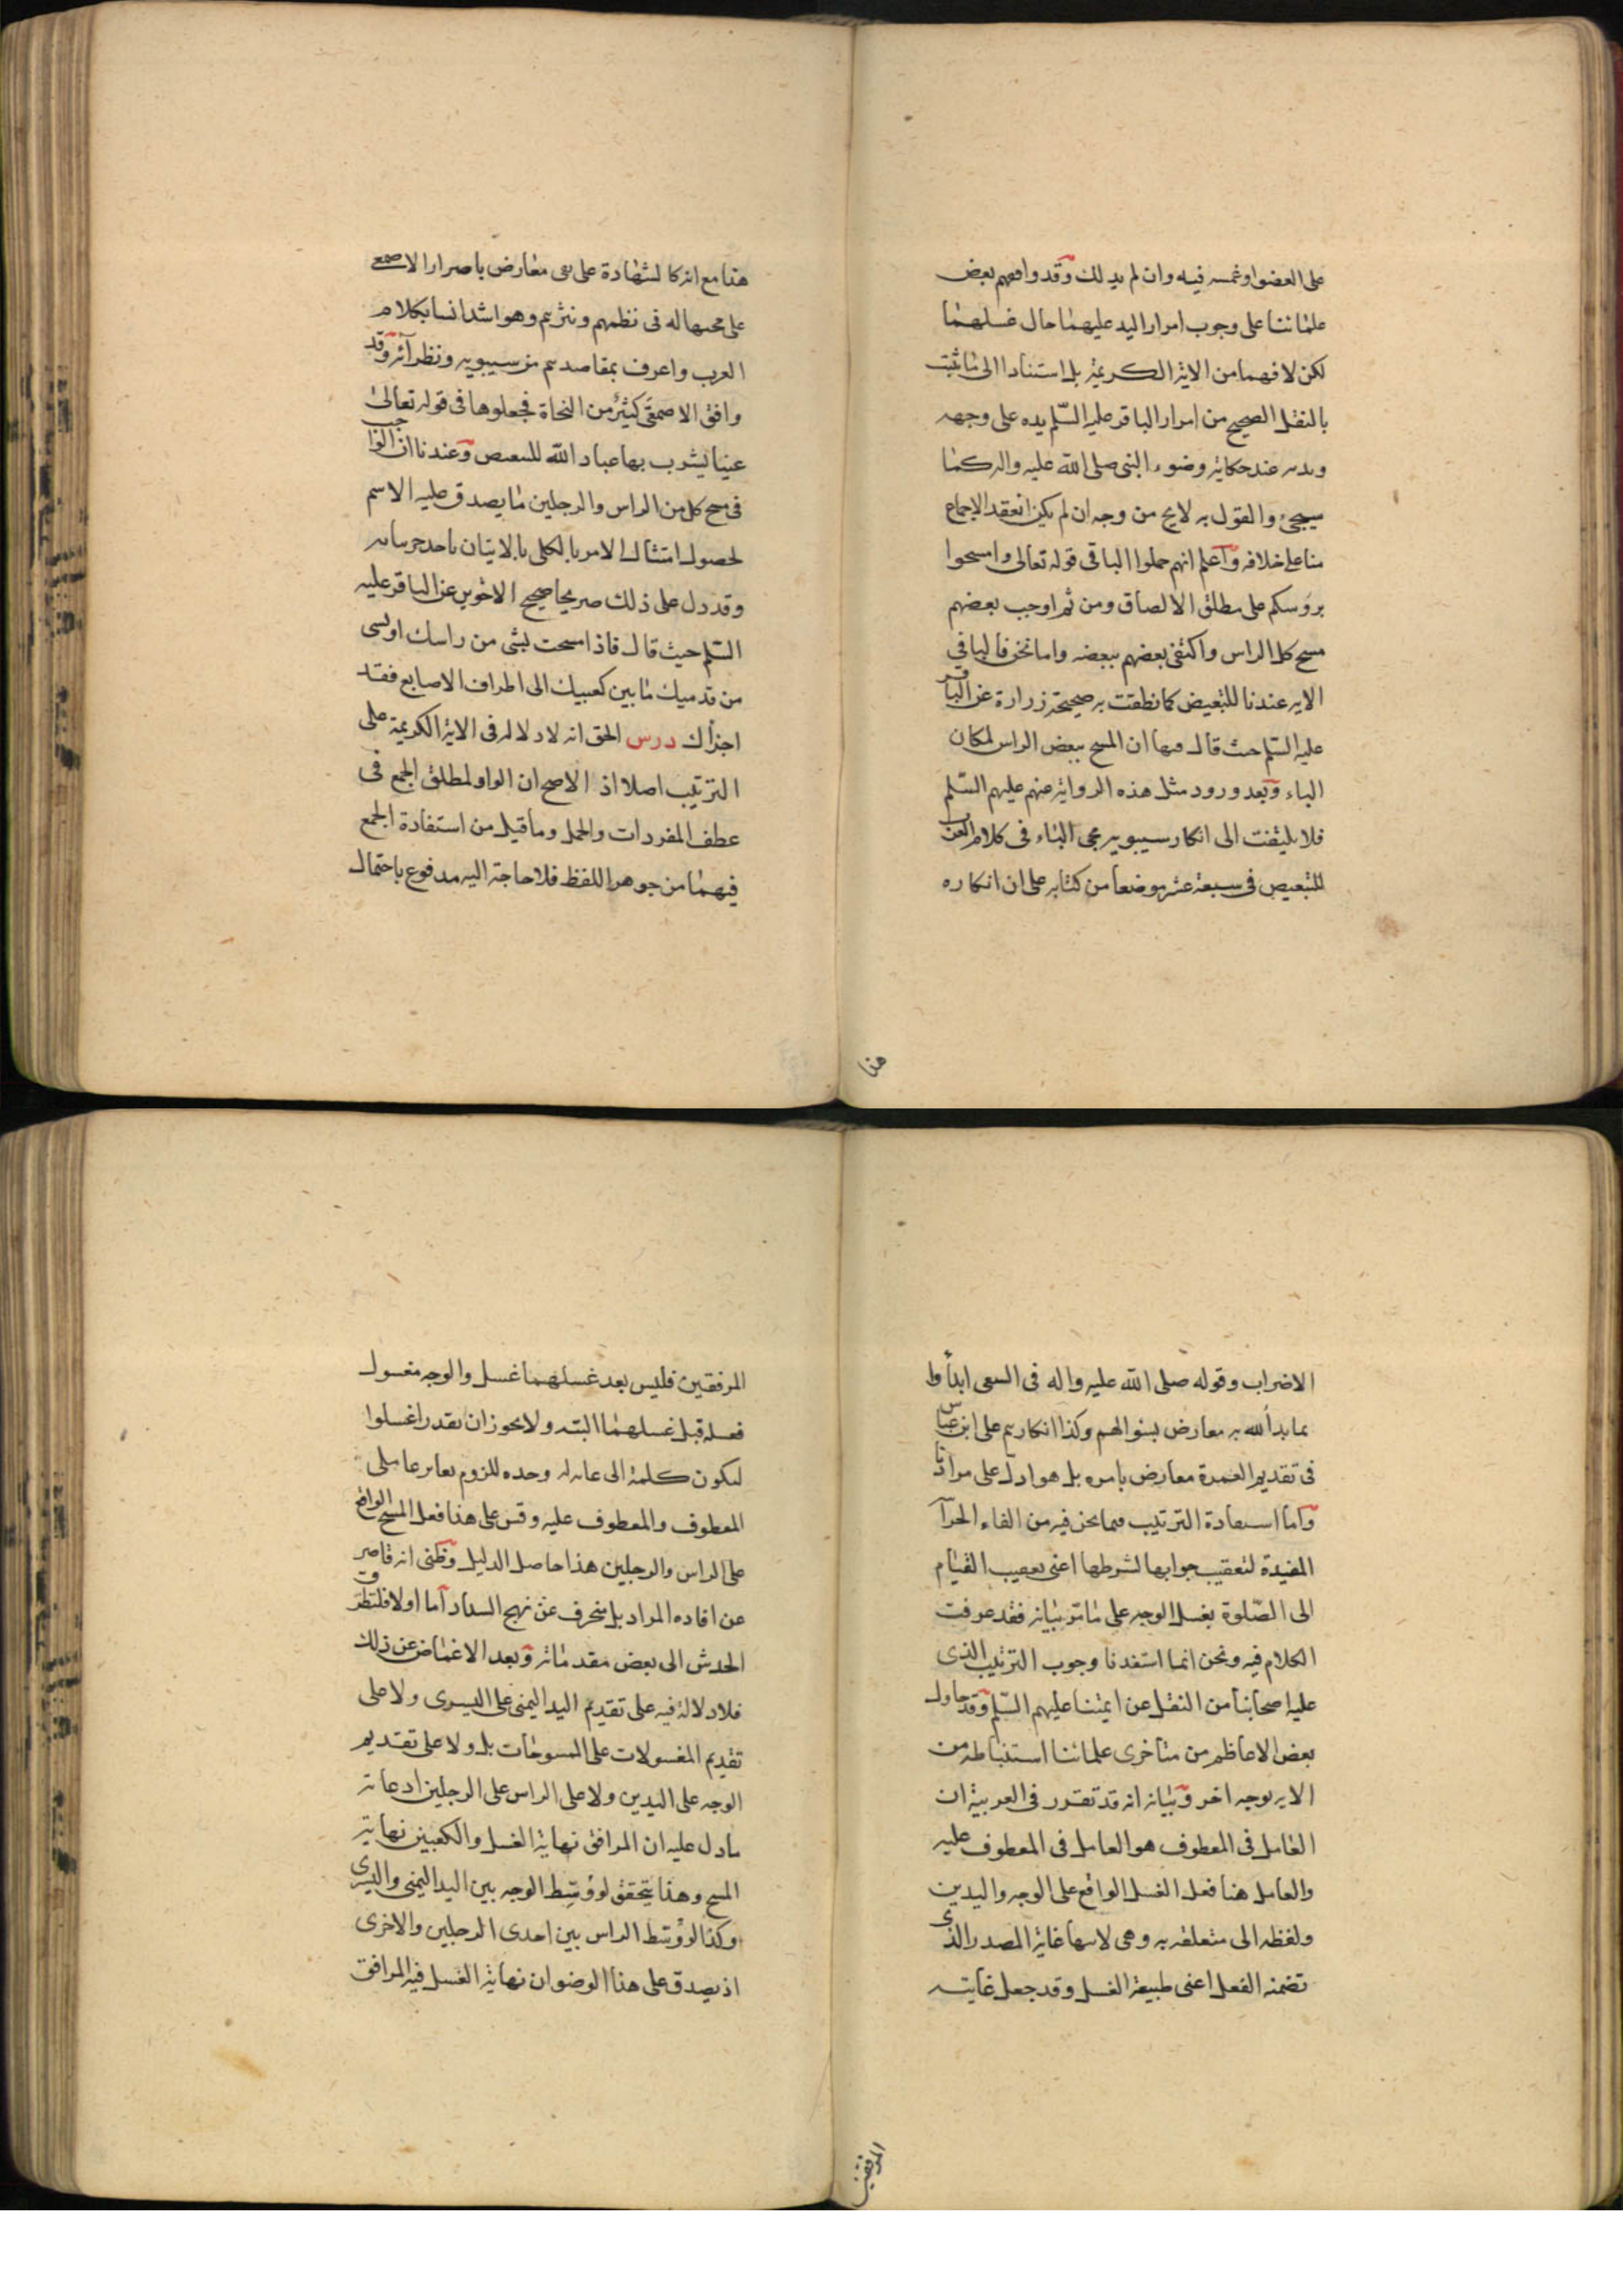 على العضو او غمسه فيه وان لم يدلك وقد وافقهم بعض
علمائنا على وجوب امرار اليد عليهما حال غسلهما
لكن لا فهما من الاية الكريمة بل استنادا الى ما ثبت
بالنقل الصحيح من امرار الباقر عليه السّلم يده على وجهه
ويديه عند حكاية وضوء النبي صلى الله عليه واله كما
سيجئ والقول به لا يخ من وجه ان لم يكن انعقد الاجماع
منا على خلافه واعلم انهم حملوا الباء في قوله تعالى وامسحوا
برؤسكم على مطلق الالصاق ومن ثم اوجب بعضهم
مسح كل الراس واكتفى بعضهم ببعضه واما نحن فالباء في
الايه عندنا للتبعيض كما نطقت به صحيحة زرارة عن الباقر
عليه السّلم حيث قال فيها ان المسح ببعض الراس لمكان
الباء وبعد ورود مثل هذه الرواية عنهم عليهم السّلم
فلا يلتفت الى انكار سيبويه مجى الباء في كلام العرب
للتبعيض في سبعة عشر موضعا من كتابه على ان انكاره
هذا
هذا مع انه كالشهادة على نفى معارض باصرار الاصمعى
على مجيها له في نظمهم ونثرهم وهو اشد انسا بكلام
العرب واعرف بمقاصدهم من سيبويه ونظرائه وقد
وافق الاصمعى كثير من النحاة فجعلوها في قوله تعالى
عينا يشرب بها عباد الله للتبعيض وعندنا ان الواجب
في مسح كل من الراس والرجلين ما يصدق عليه الاسم
لحصول امتثال الامر بالكلى بالاتيان باحد جزئياته
وقد دل على ذلك صريحا صحيح الاخوين عن الباقر عليه
السّلم حيث قال فاذا مسحت بشى من راسك او بشى
من قدميك ما بين كعبيك الى اطراف الاصابع فقد
اجزأك درس الحق انه لا دلالة في الاية الكريمة على
الترتيب اصلا اذ الاصح ان الواو لمطلق الجمع في
عطف المفردات والجمل وما قيل من استفادة الجمع
فيهما من جوهر اللفظ فلا حاجة اليه مدفوع باحتمال
الاضراب وقوله صلى الله عليه واله في السعى ابدأوا
بما بدأ الله به معارض بسؤالهم وكذا انكارهم على ابن عباس
في تقديم العمرة معارض بامره بل هو ادل على مرادنا
واما استفادة الترتيب فيما نحن فيه من الفاء الجزا
المفيدة لتعقيب جوابها لشرطها اعنى تعقيب القيام
الى الصّلوة بغسل الوجه على ما مر بيانه فقد عرفت
الكلام فيه ونحن انما استفدنا وجوب الترتيب الذى
عليه اصحابنا من النقل عن ائمتنا عليهم السّلم وقد حاول
بعض الاعاظم من متاخرى علمائنا استنباطه من
الايه بوجه اخر وبيانه انه قد تقرر في العربية ان
العامل في المعطوف هو العامل في المعطوف عليه
والعامل هنا فعل الغسل الواقع على الوجه واليدين
ولفظه الى متعلقه به وهى لانتهاء غاية المصدر الذى
تضمنه الفعل اعنى طبيعة الغسل وقد جعل غايته
المرفقين
المرفقين فليس بعد غسلهما غسل والوجه مغسول
فغسله قبل غسلهما البتة ولا يجوز ان يقدر اغسلوا
ليكون كلمة الى غاية له وحده للزوم تغاير عاملى
المعطوف والمعطوف عليه وقس على هذا فعل المسح الواقع
على الراس والرجلين هذا حاصل الدليل وظنى انه قاصر
عن افاده المراد بل منحرف عن نهج السداد اما اولا فلتطرق
الخدش الى بعض مقدماته وبعد الاغماض عن ذلك
فلا دلالة فيه على تقديم اليد اليمنى على اليسرى ولا على
تقديم المغسولات على الممسوحات بل ولا على تقديم
الوجه على اليدين ولا على الراس على الرجلين اذ غاية
ما دل عليه ان المرافق نهاية الغسل والكعبين نهاية
المسح وهذا يتحقق لو وُسّط الوجه بين اليد اليمنى واليسرى
وكذا لو وُسّط الراس بين احدى الرجلين والاخرى
اذ يصدق على هذا الوضو ان نهاية الغسل فيه المرافق